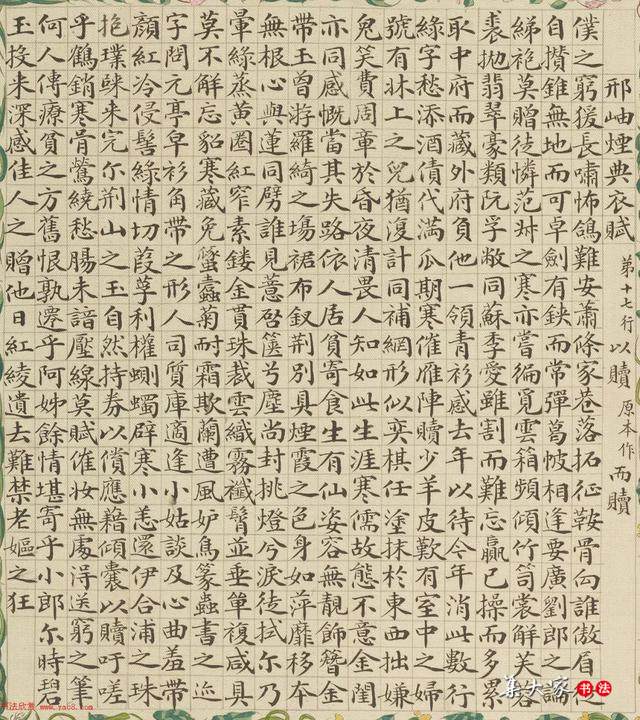 邢岫煙典衣賦 第十七行以贖原本作而贖
僕之窮猨長嘯怖鴿難安蕭條家巷落拓征鞍骨向誰傲眉從
自攢錐無地而可卓劍有鋏而常彈葛帔相逢要廣劉郎之論
綈袍莫贈徒憐范叔之寒亦嘗徧覓雲箱頻傾竹笥裳解芙蓉
裘拋翡翠豪類阮孚敝同蘇季愛雖割而難忘贏已操而多累
取中府而藏外府負他一領青衫感去年以待今年消此數行
綠字愁添酒債代滿瓜期寒催雁陣贖少羊皮歎有室中之婦
號有牀上之兒猶復計同補網形似弈棋任塗抹於東西拙嫌
鬼笑費周章於昏夜清畏人知如此生涯寒儒故態不意金閨
亦同感慨當其失路依人居貧寄食生有仙姿容無靚飾簪金
帶玉曾游羅綺之場裙布釵荊別具煙霞之色身如萍靡移本
無根心與蓮同劈誰見薏啟篋兮塵尚封挑燈兮淚徒拭尔乃
暈綠蒸黃圈紅窄素鏤金貫珠裁雲織霧襳髾並垂單複咸具
莫不解忘貂寒藏免蠹菊耐霜欺蘭遭風妒鳥篆蟲書之迹
字問元亭皁衫角帶之形人司質庫適逢小姑談及心曲羞帶
顏紅冷侵髻綠情切葭莩利權辟寒小恙還伊合浦之珠
抱璞来完尔荊山之玉自然持券以償應藉傾囊以贖吁嗟
乎鶴銷寒骨鶯繞愁腸未諳壓線莫賦催妝無處淂送窮之筆
何人傳療貧之方舊恨孰遷乎阿姊餘情堪寄乎小郎尔時碧
玉投来深感佳人之贈他日紅綾遺去難禁老嫗之狂
集大家书法
书法欣赏 www.yac8.com